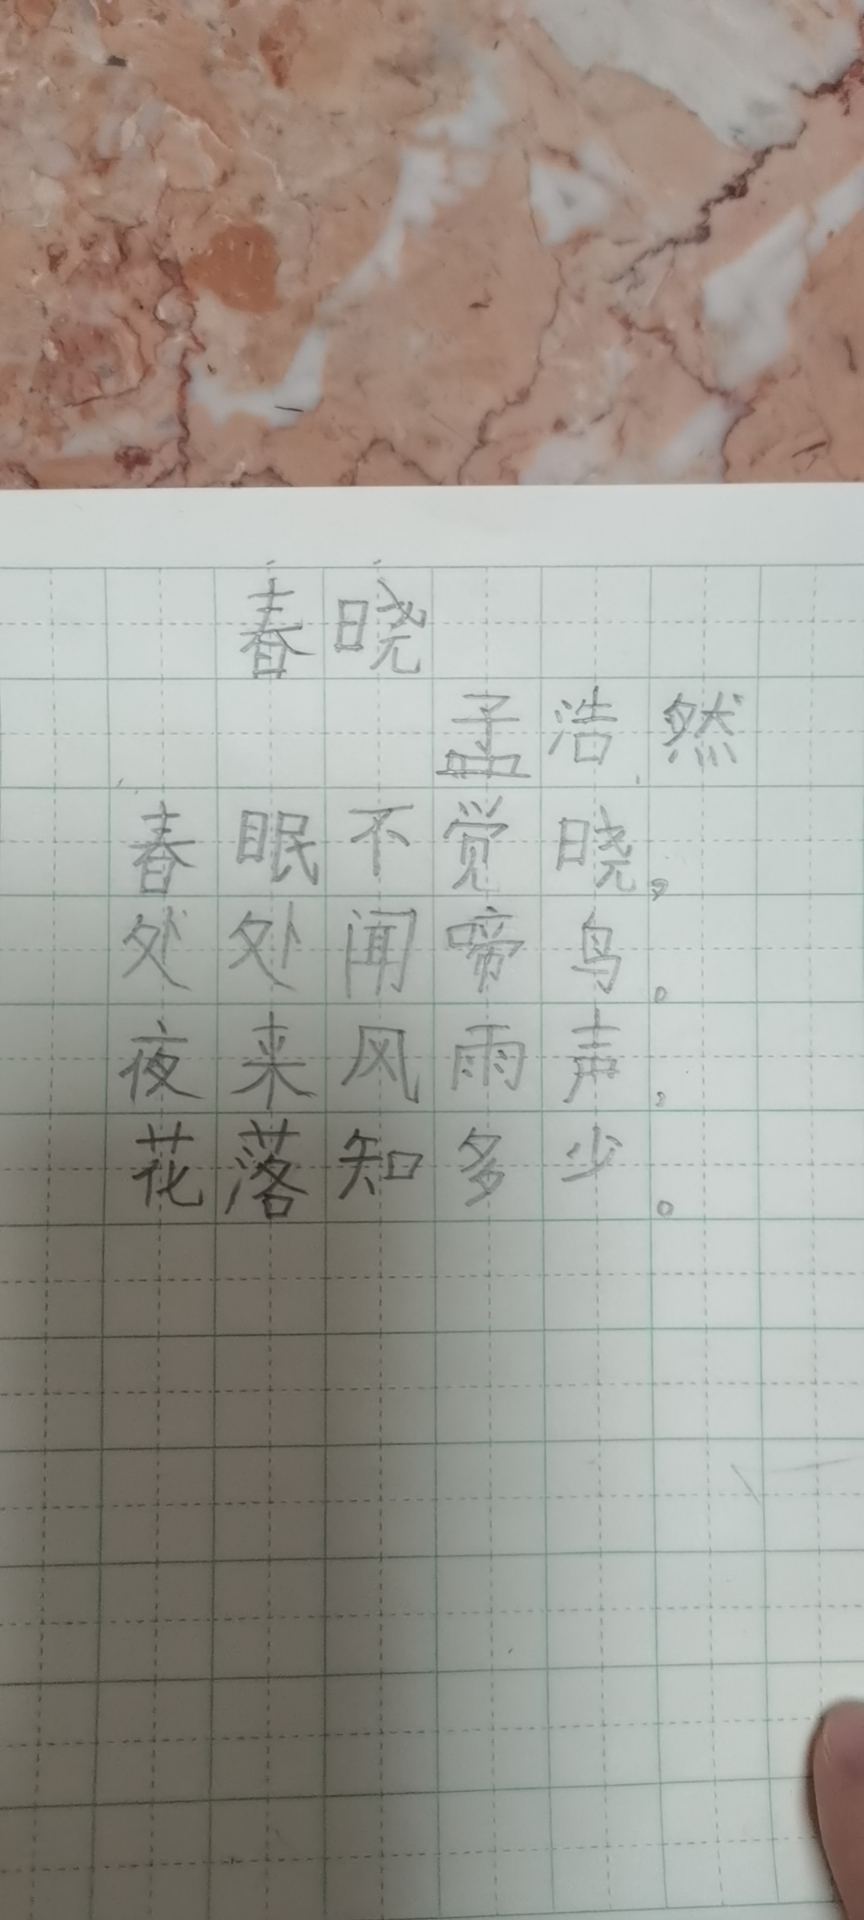 春晓
孟浩然
春眠不觉晓，
处处闻啼鸟。
夜来风雨声，
花落知多少。